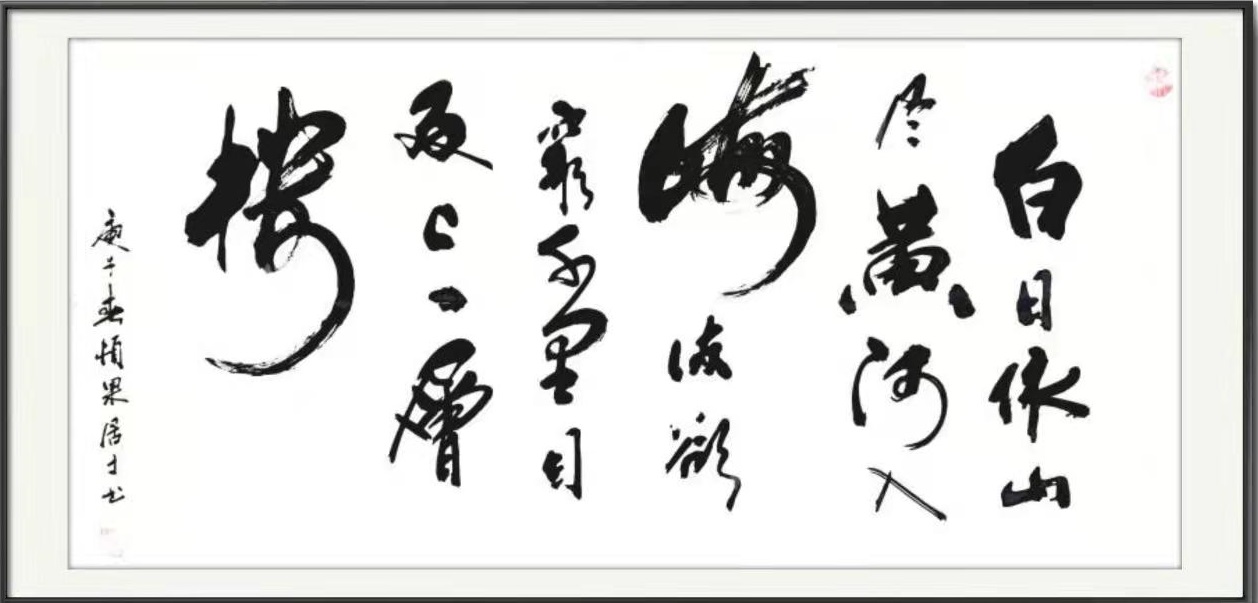 白日依山
尽黄河入
海流欲
窮千里目
更上一層
樓
庚子春慎果居士书